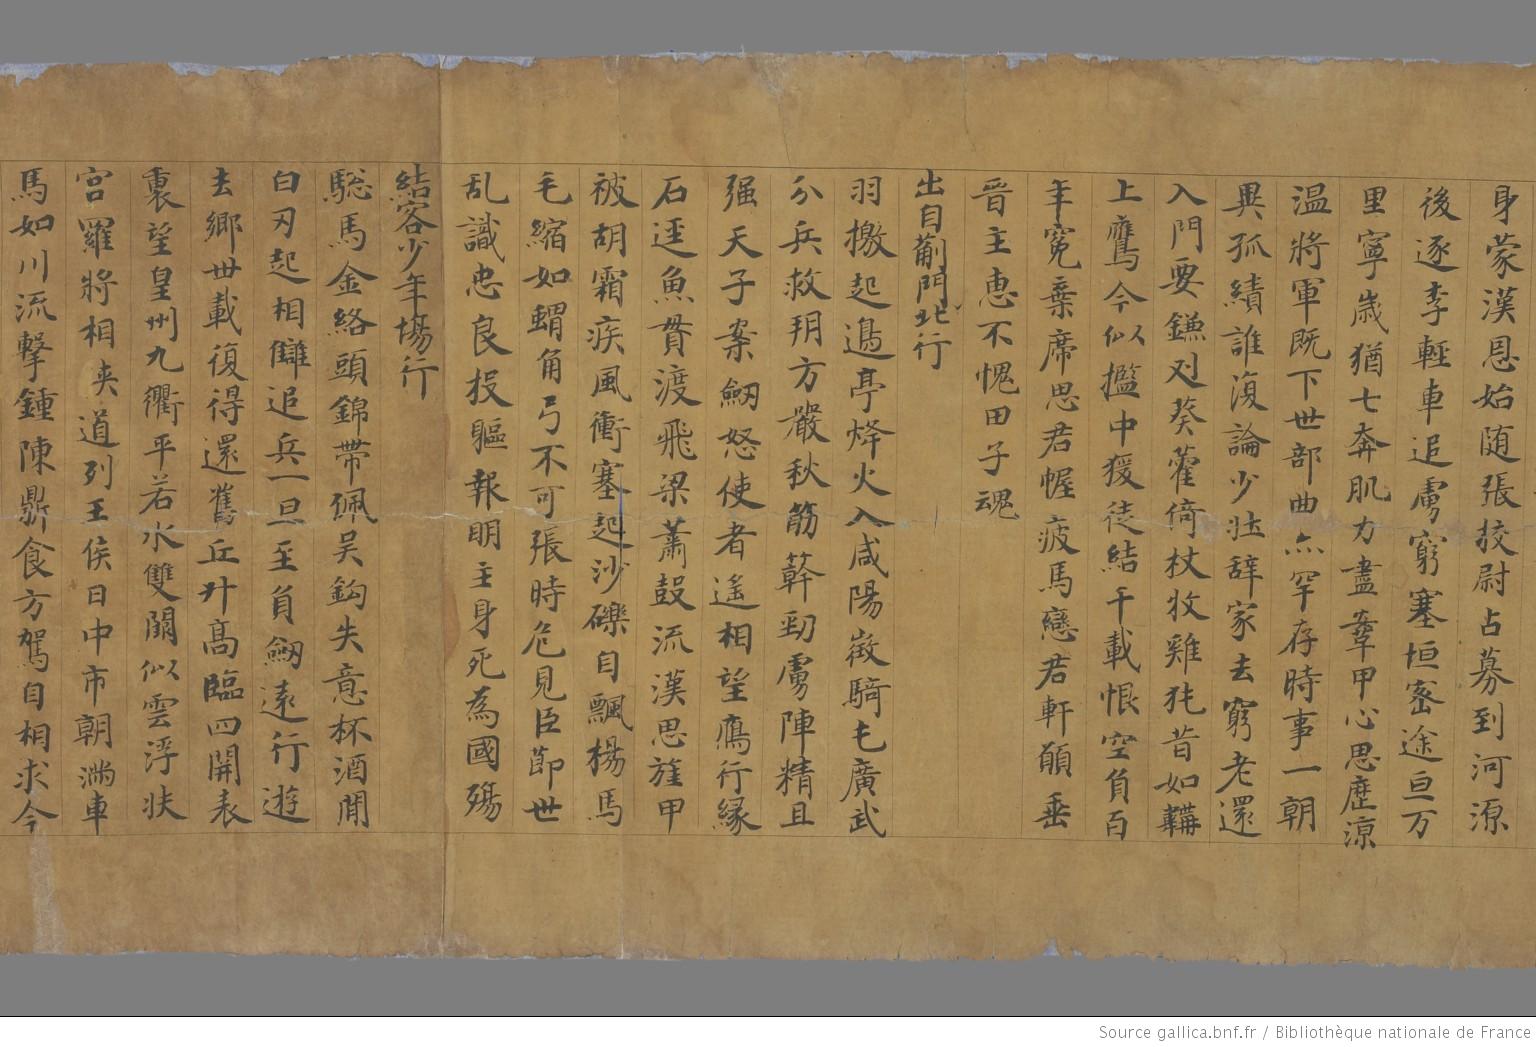 身蒙漢恩始随張挍尉占募到河源
後逐李輕車追虜窮塞垣宻途亘万
里寧歲猶七奔肌力盡鞌甲心思歷涼
温將軍既下世部曲亦罕存時事一朝
異孤績誰復論少壮辞家去窮老還
入門要鎌刈葵藿倚杖牧雞㹠昔如韝
上鷹今似檻中猨徒結千載恨空負百
年寃棄席思君幄疲馬戀君軒願垂
晋主恵不愧田子魂
出自薊門北行
羽檄起邊亭烽火入咸陽徴騎屯廣武
分兵救朔方嚴秋筋簳勁虜陣精且
强天子案劒怒使者遙相望鴈行縁
石逕魚貫渡飛梁蕭鼓流漢思旌甲
被胡霜疾風衝塞起沙礫自飄楊馬
毛縮如蝟角弓不可張時危見臣節世
乱識忠良投軀報明主身死為國殤
結客少年場行
驄馬金絡頭錦帶佩吴鈎失意杯酒間
白刃起相讎追兵一旦至負劒遠行遊
去鄉卅載復得還舊丘升髙臨四開表
裏望皇州九衢平若水雙闕似雲浮扶
宫羅將相夾道列王侯日中市朝滿車
馬如川流擊鍾陳鼎食方駕自相求今
Source gallica.bnf.fr / Bibliothèque nationale de France